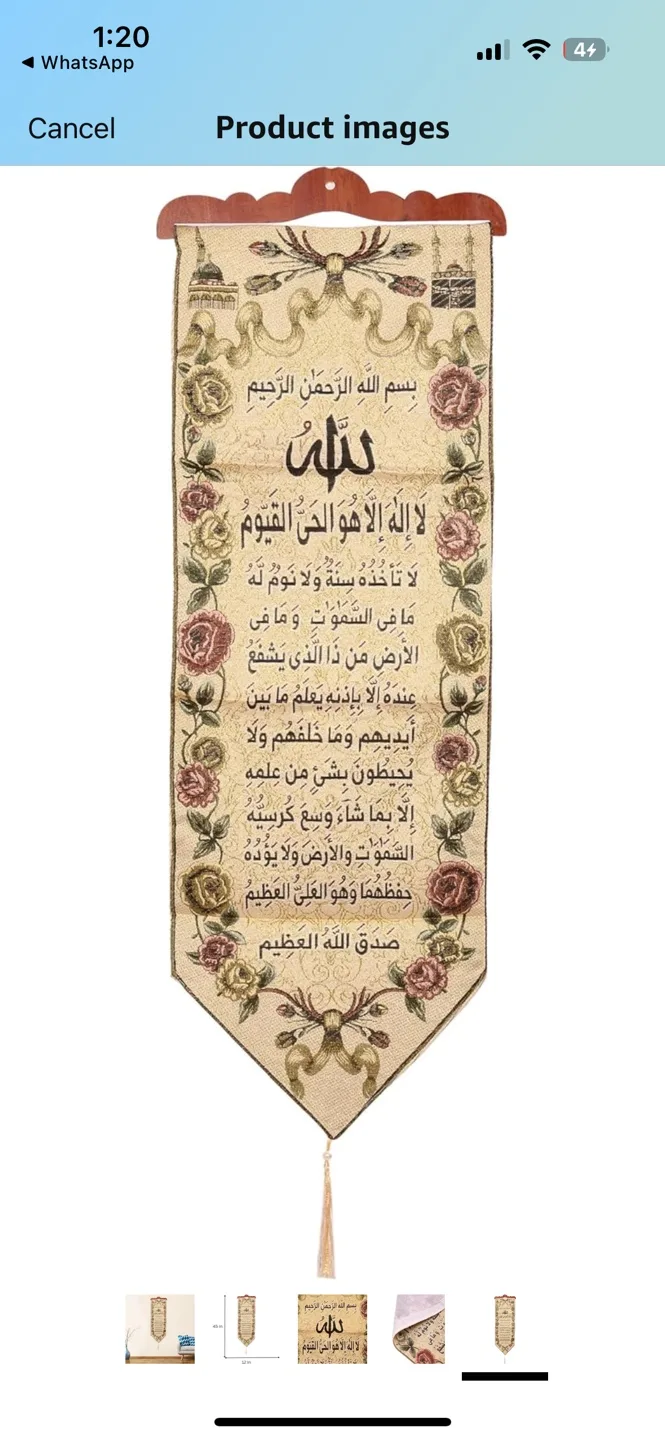 1:20
4
◀ WhatsApp
Cancel
Product images
بِسمِ اللَّهِ الرَّحمَٰنِ الرَّحِيمِ
اللَّهُ
لَا إِلَٰهَ إِلَّا هُوَ الحَىُّ القَيُّومُ
لَا تَأخُذُهُ سِنَةٌ وَلَا نَومٌ لَّهُ
مَا فِى السَّمَٰوَٰتِ وَمَا فِى
الأَرضِ مَن ذَا الَّذِى يَشفَعُ
عِندَهُ إِلَّا بِإِذنِهِ يَعلَمُ مَا بَينَ
أَيدِيهِم وَمَا خَلفَهُم وَلَا
يُحِيطُونَ بِشَىءٍ مِن عِلمِهِ
إِلَّا بِمَا شَآءَ وَسِعَ كُرسِيُّهُ
السَّمَٰوَٰتِ والأَرضَ وَلَا يَؤُدُهُ
حِفظُهُمَا وَهُوَ العَلِىُّ العَظِيمُ
صَدَقَ اللَّهُ العَظِيم
بسم الله الرحمن الرحيم
الله
لا إله إلا هو الحى القيوم